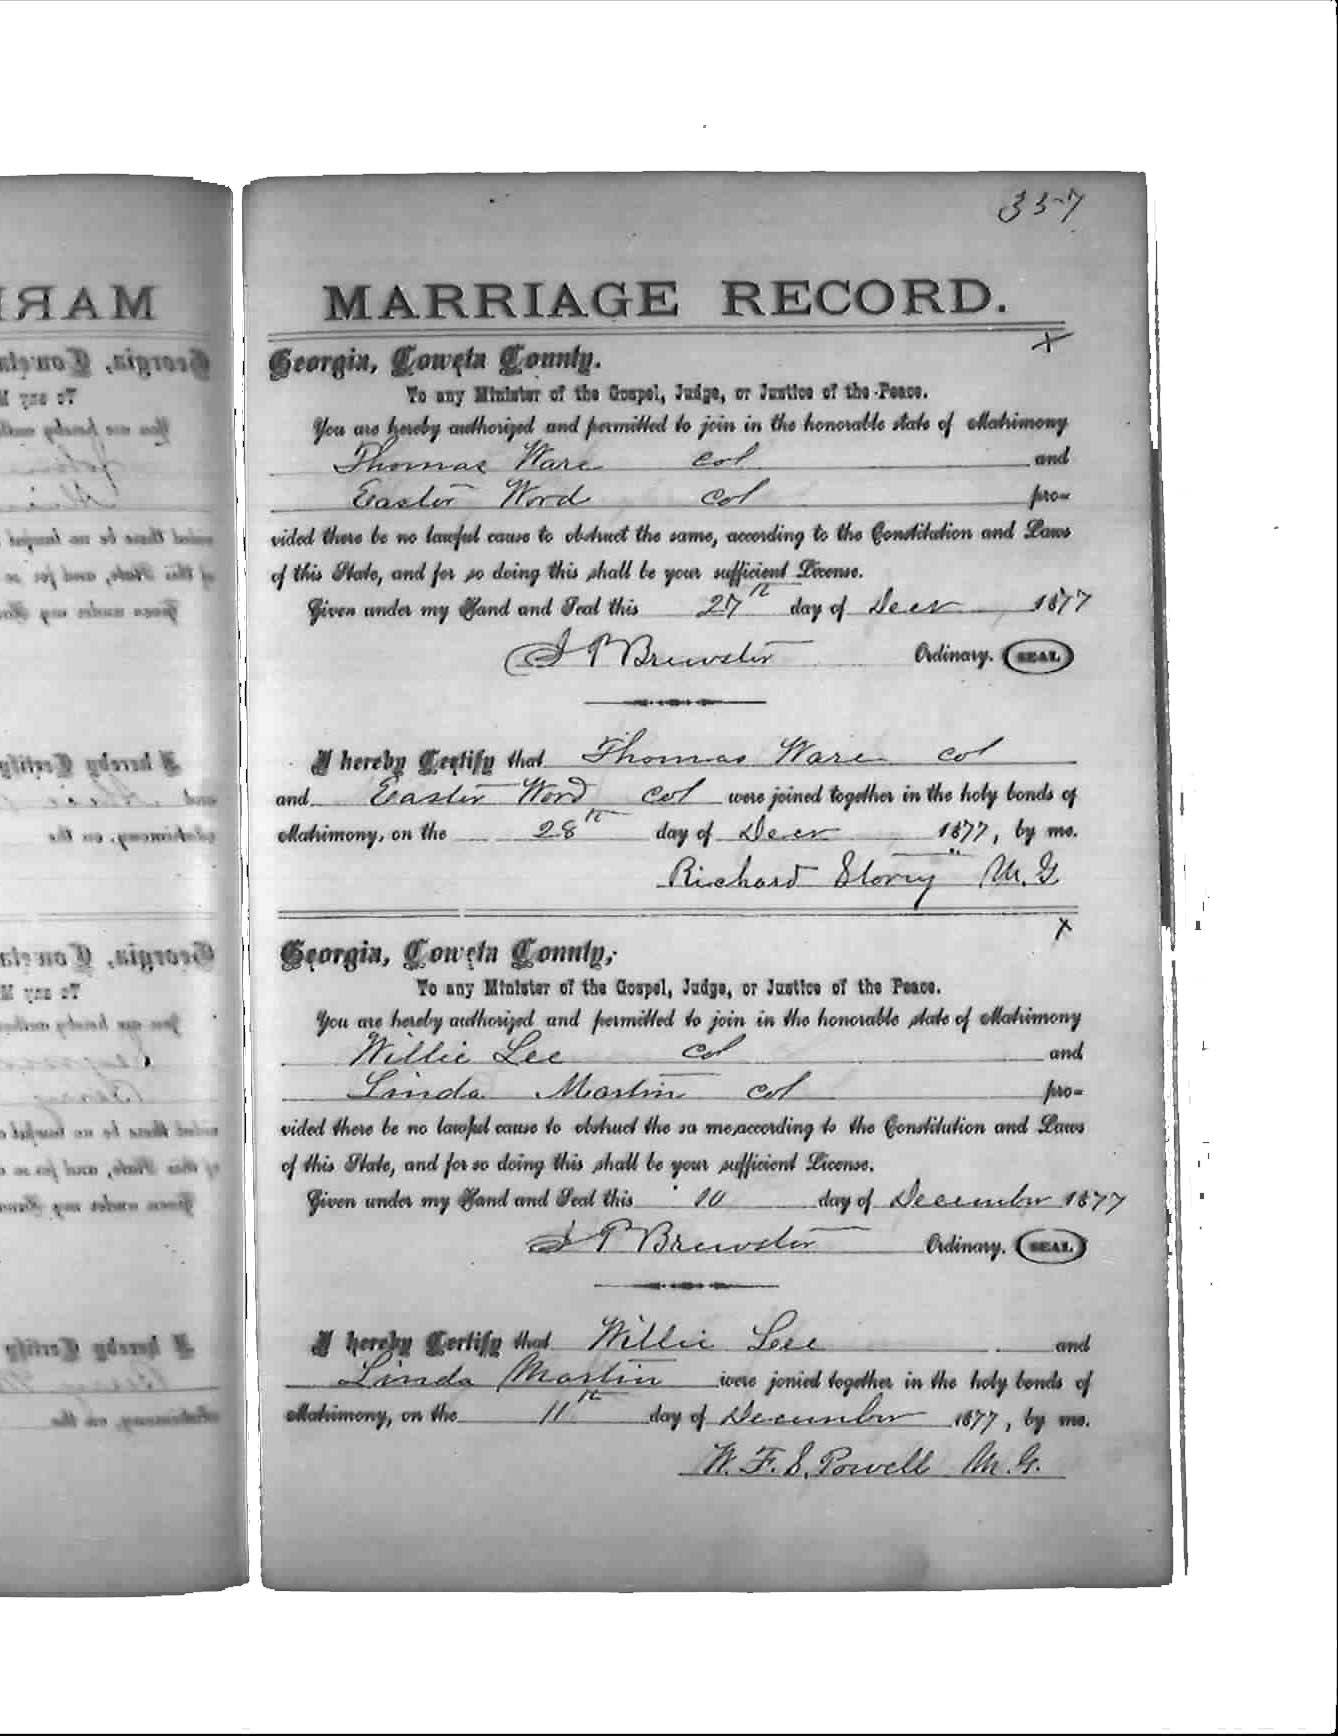 357
MARRIAGE RECORD.
x
Georgia, Coweta County.
To any Minister of the Gospel, Judge, or Justice of the Peace.
You are hereby authorized and permitted to join in the honorable state of Matrimony
Thomas Ware col and
Easter Word col pro=
vided there be no lawful cause to obstruct the same, according to the Constitution and Laws
of this State, and for so doing this shall be your sufficient License.
Given under my Hand and Seal this 27th day of Decr 1877
J P Brewster Ordinary. SEAL
I hereby Certify that Thomas Ware col
and Easter Word col were joined together in the holy bonds of
Matrimony, on the 28th day of Decr 1877, by me.
Richard Storey M.G.
x
Georgia, Coweta County,
To any Minister of the Gospel, Judge, or Justice of the Peace.
You are hereby authorized and permitted to join in the honorable state of Matrimony
Willie Lee col and
Linda Martin col pro=
vided there be no lawful cause to obstruct the sa me, according to the Constitution and Laws
of this State, and for so doing this shall be your sufficient License.
Given under my Hand and Seal this 10 day of December 1877
J P Brewster Ordinary. SEAL
I hereby Certify that Willie Lee and
Linda Martin were jonied together in the holy bonds of
Matrimony, on the 11th day of December 1877, by me.
W. F. S. Powell M.G.